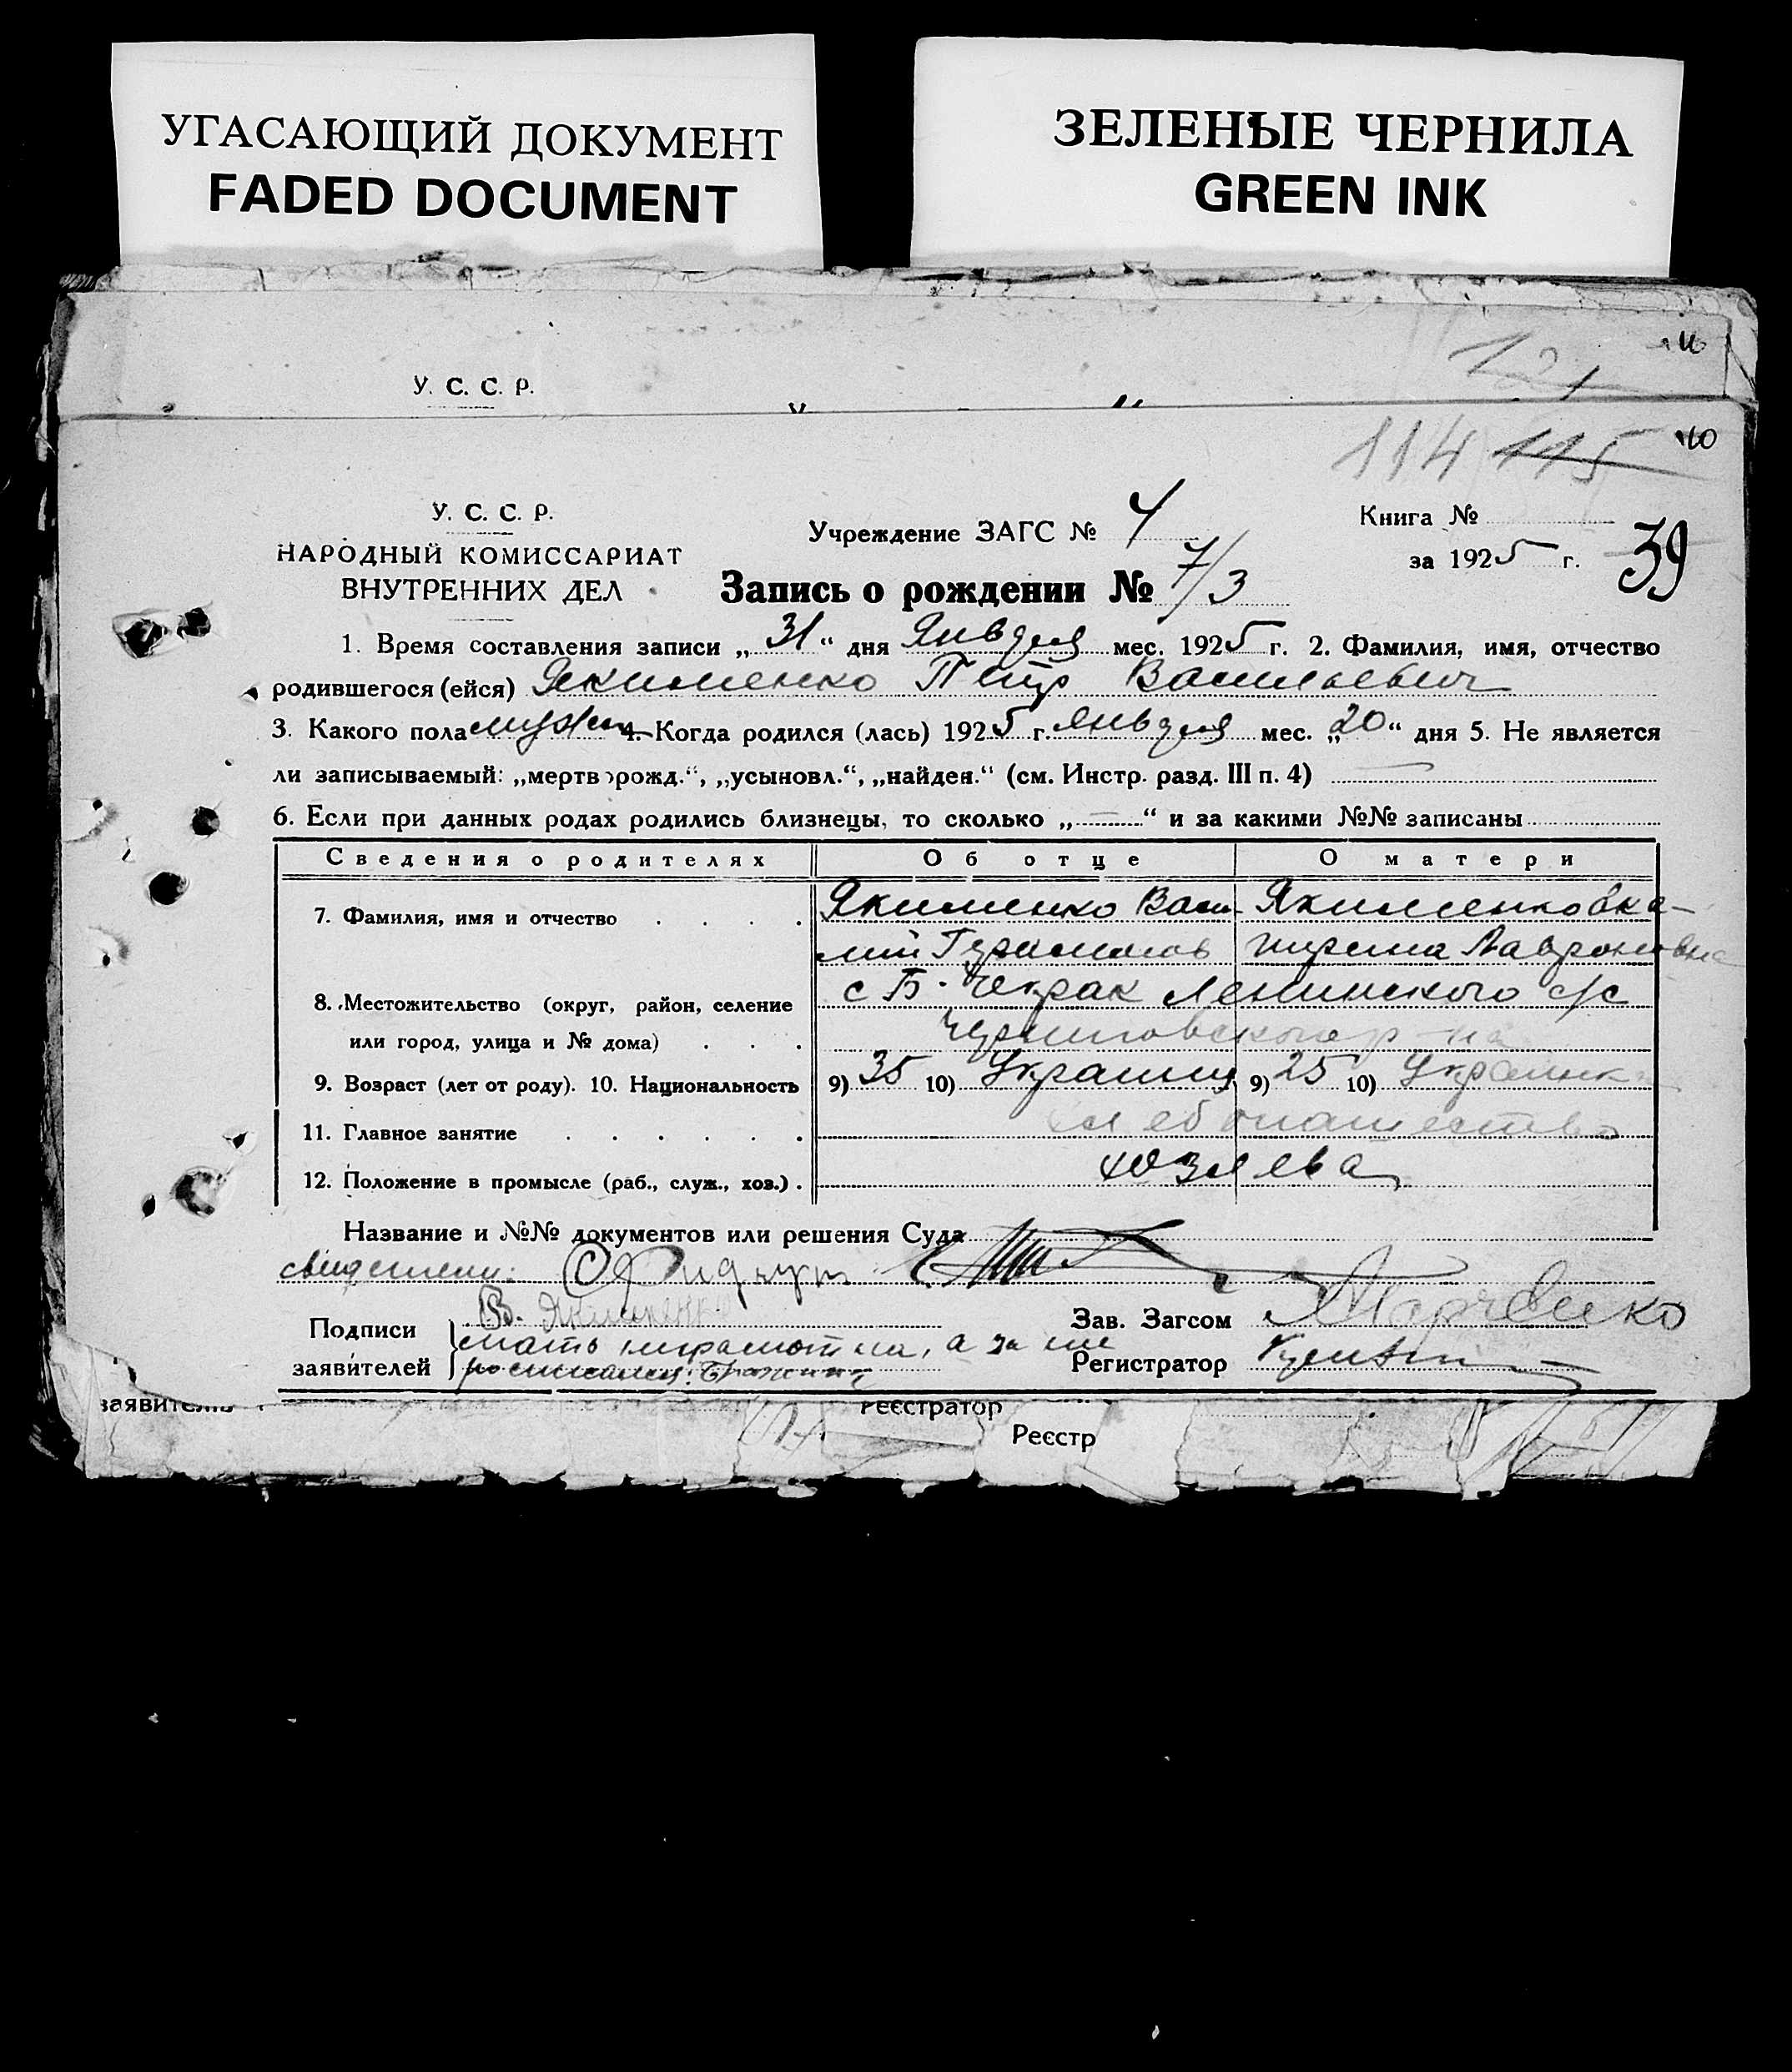 УГАСАЮЩИЙ ДОКУМЕНТ
FADED DOCUMENT
ЗЕЛЕНЫЕ ЧЕРНИЛА
GREEN INK
У. С. С. Р.
121
16
114 115 10
У. С. С. Р.
НАРОДНЫЙ КОМИССАРИАТ
ВНУТРЕННИХ ДЕЛ
Учреждение ЗАГС № 4
Книга №
за 1925 г.
39
Запись о рождении № 7/3
1. Время составления записи „31“ дня Января мес. 1925 г. 2. Фамилия, имя, отчество
родившегося (ейся) Якименко Петр Васильевич
3. Какого пола мужск 4. Когда родился (лась) 1925 г. января мес. „20“ дня 5. Не является
ли записываемый: „мертворожд.“, „усыновл.“, „найден.“ (см. Инстр. разд. III п. 4) —
6. Если при данных родах родились близнецы, то сколько „—“ и за какими №№ записаны
Сведения о родителях Об отце О матери
7. Фамилия, имя и отчество Якименко Васи- Якименкова
лий Лавроновна
8. Местожительство (округ, район, селение с Б. Чекрак Ленинского с/с
или город, улица и № дома) Черниговского р-на
9. Возраст (лет от роду). 10. Национальность 9) 35 10) Украинец 9) 25 10) Украинка
11. Главное занятие хлебопашество
12. Положение в промысле (раб., служ., хоз.) хозяева
Название и №№ документов или решения Суда
свидетели:
В. Якименко
Подписи
заявителей
мать неграмотна, а за нее
расписался:
Зав. Загсом
Регистратор
заявителів
Реєстратор
Реєстр